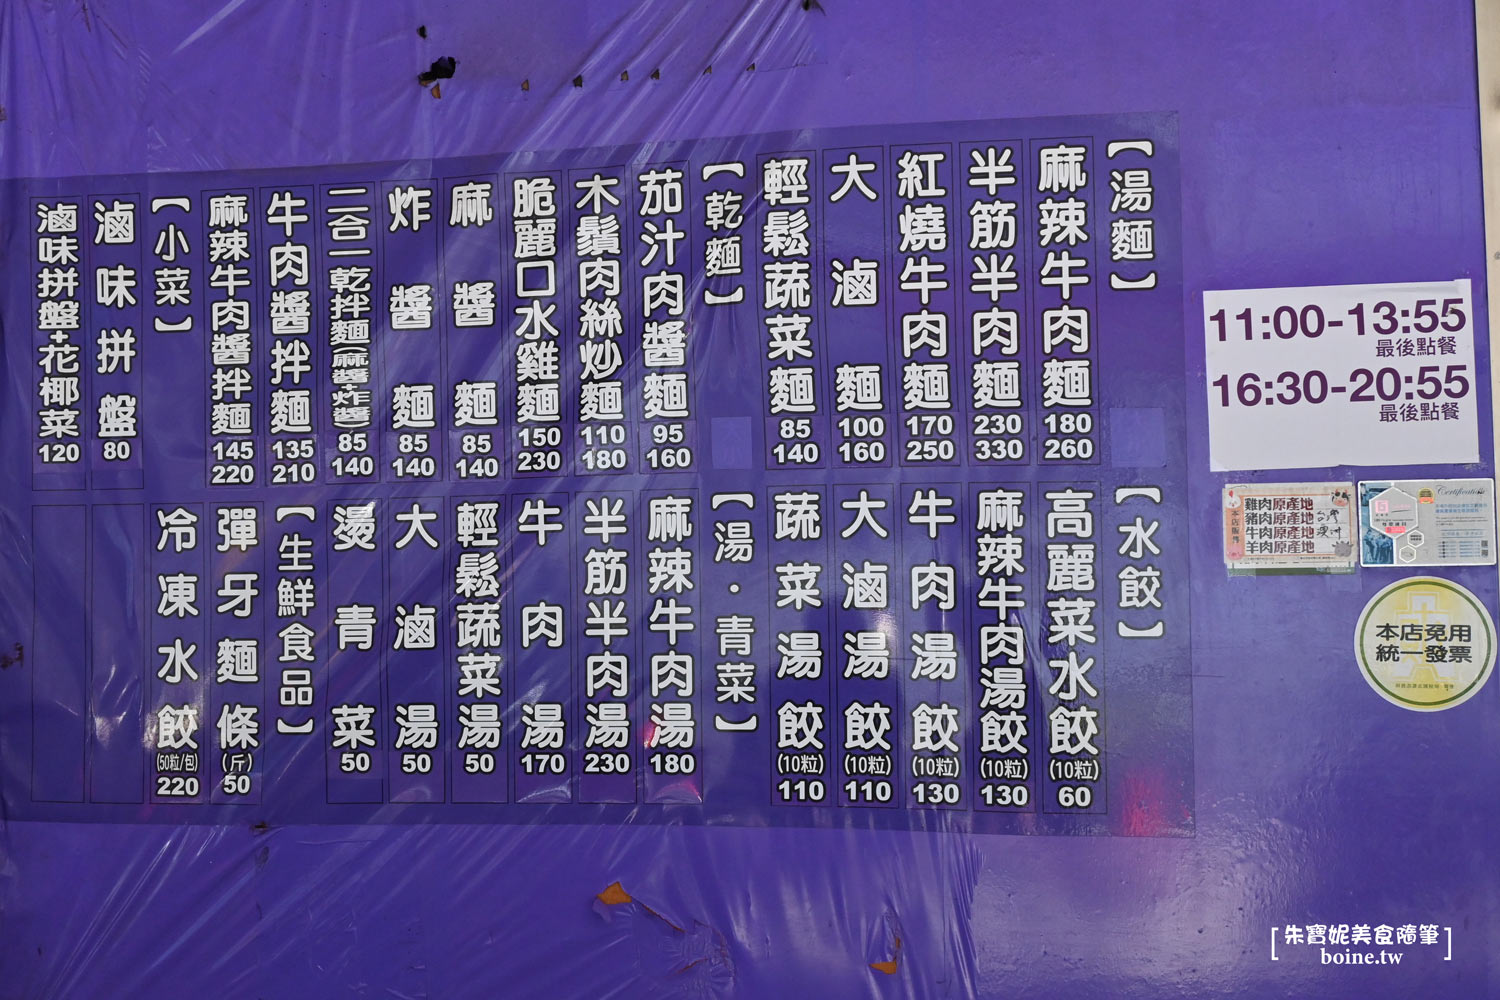 【湯麵】
麻辣牛肉麵 180 260
半筋半肉麵 230 330
紅燒牛肉麵 170 250
大滷麵 100 160
輕鬆蔬菜麵 85 140
【乾麵】
茄汁肉醬麵 95 160
木鬚肉絲炒麵 110 180
脆麗口水雞麵 150 230
麻醬麵 85 140
炸醬麵 85 140
二合一乾拌麵(麻醬+炸醬) 85 140
牛肉醬拌麵 135 210
麻辣牛肉醬拌麵 145 220
【小菜】
滷味拼盤 80
滷味拼盤+花椰菜 120
【水餃】
高麗菜水餃(10粒) 60
麻辣牛肉湯餃(10粒) 130
牛肉湯餃(10粒) 130
大滷湯餃(10粒) 110
蔬菜湯餃(10粒) 110
【湯·青菜】
麻辣牛肉湯 180
半筋半肉湯 230
牛肉湯 170
輕鬆蔬菜湯 50
大滷湯 50
燙青菜 50
【生鮮食品】
彈牙麵條(斤) 50
冷凍水餃(50粒/包) 220
11:00-13:55
最後點餐
16:30-20:55
最後點餐
本店販售
雞肉原產地
豬肉原產地 台灣
牛肉原產地 澳洲
羊肉原產地
Certification
本店免用
統一發票
[朱寶妮美食隨筆]
boine.tw